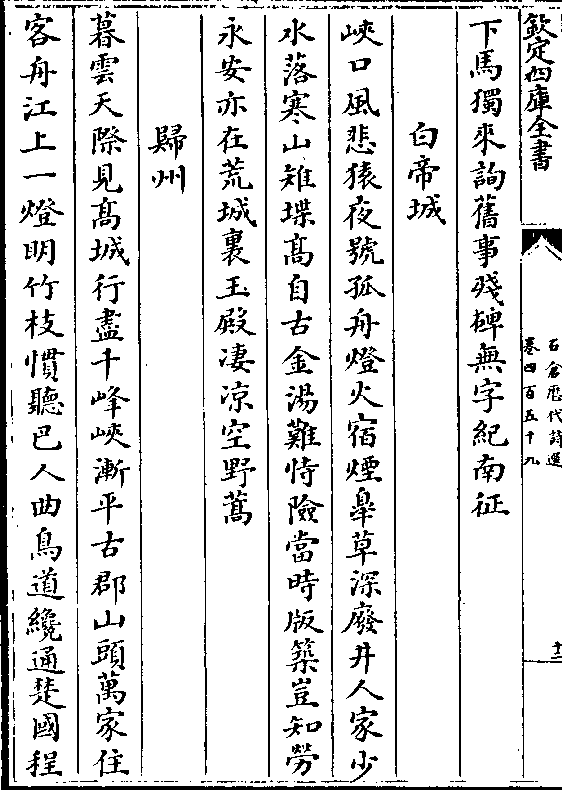 欽定四庫全書
石倉歷代詩選
卷四百五十九
十二
下馬獨來詢舊事殘碑無字紀南征
白帝城
峽口風悲猿夜號孤舟燈火宿煙臯草深廢井人家少
水落寒山雉堞髙自古金湯難恃險當時版築豈知勞
永安亦在荒城裏玉殿凄凉空野蒿
歸州
暮雲天際見髙城行盡千峰峽漸平古郡山頭萬家住
客舟江上一燈明竹枝慣聽巴人曲鳥道纔通楚國程